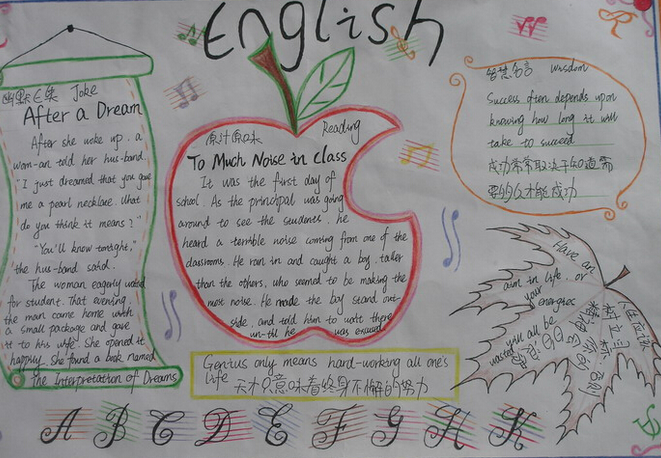 English
幽默至集 Joke
After a Dream
After she woke up, a
wom-an told her hus-band.
"I just dreamed that you gave
me a pearl necklace. What
do you think it means?"
"You'll know tonight,"
the hus-band said.
The woman eagerly
for student. That evening,
the man came home with
a small package and gave
it to his wife. She opened it
happily. She found a book named
The Interpretation of Dreams
原汁原味 Reading
To Much Noise in Class
It was the first day of
school. As the principal was going
around to see the students, he
heard a terrible noise coming from one of the
classrooms. He ran in and caught a boy, taller
than the others, who seemed to be making the
most noise. He made the boy stand out-
side, and told him to wait there
un-til he was excused
智慧名言 wisdom
Success often depends upon
knowing how long it will
take to succeed
成功常常取决于知道需
要多久才能成功
Have an
aim in life, or
your energies
will all be
wasted
人生应该
树立目标
否则
你的
精力会
白白
浪费
Genius only means hard-working all one's
life
天才只意味着终身不懈的努力
A B C D E F G H K